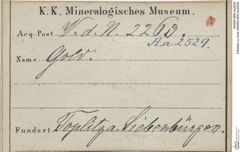 K. K. Mineralogisches Museum.
Acq.-Post W. d. N. 2263.
Aa 2529.
Name Gold.
Fundort Toplitza. Siebenbürgen.